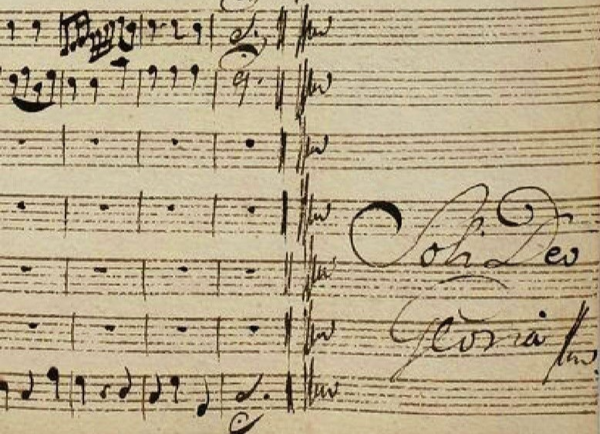 Soli Deo
Gloria